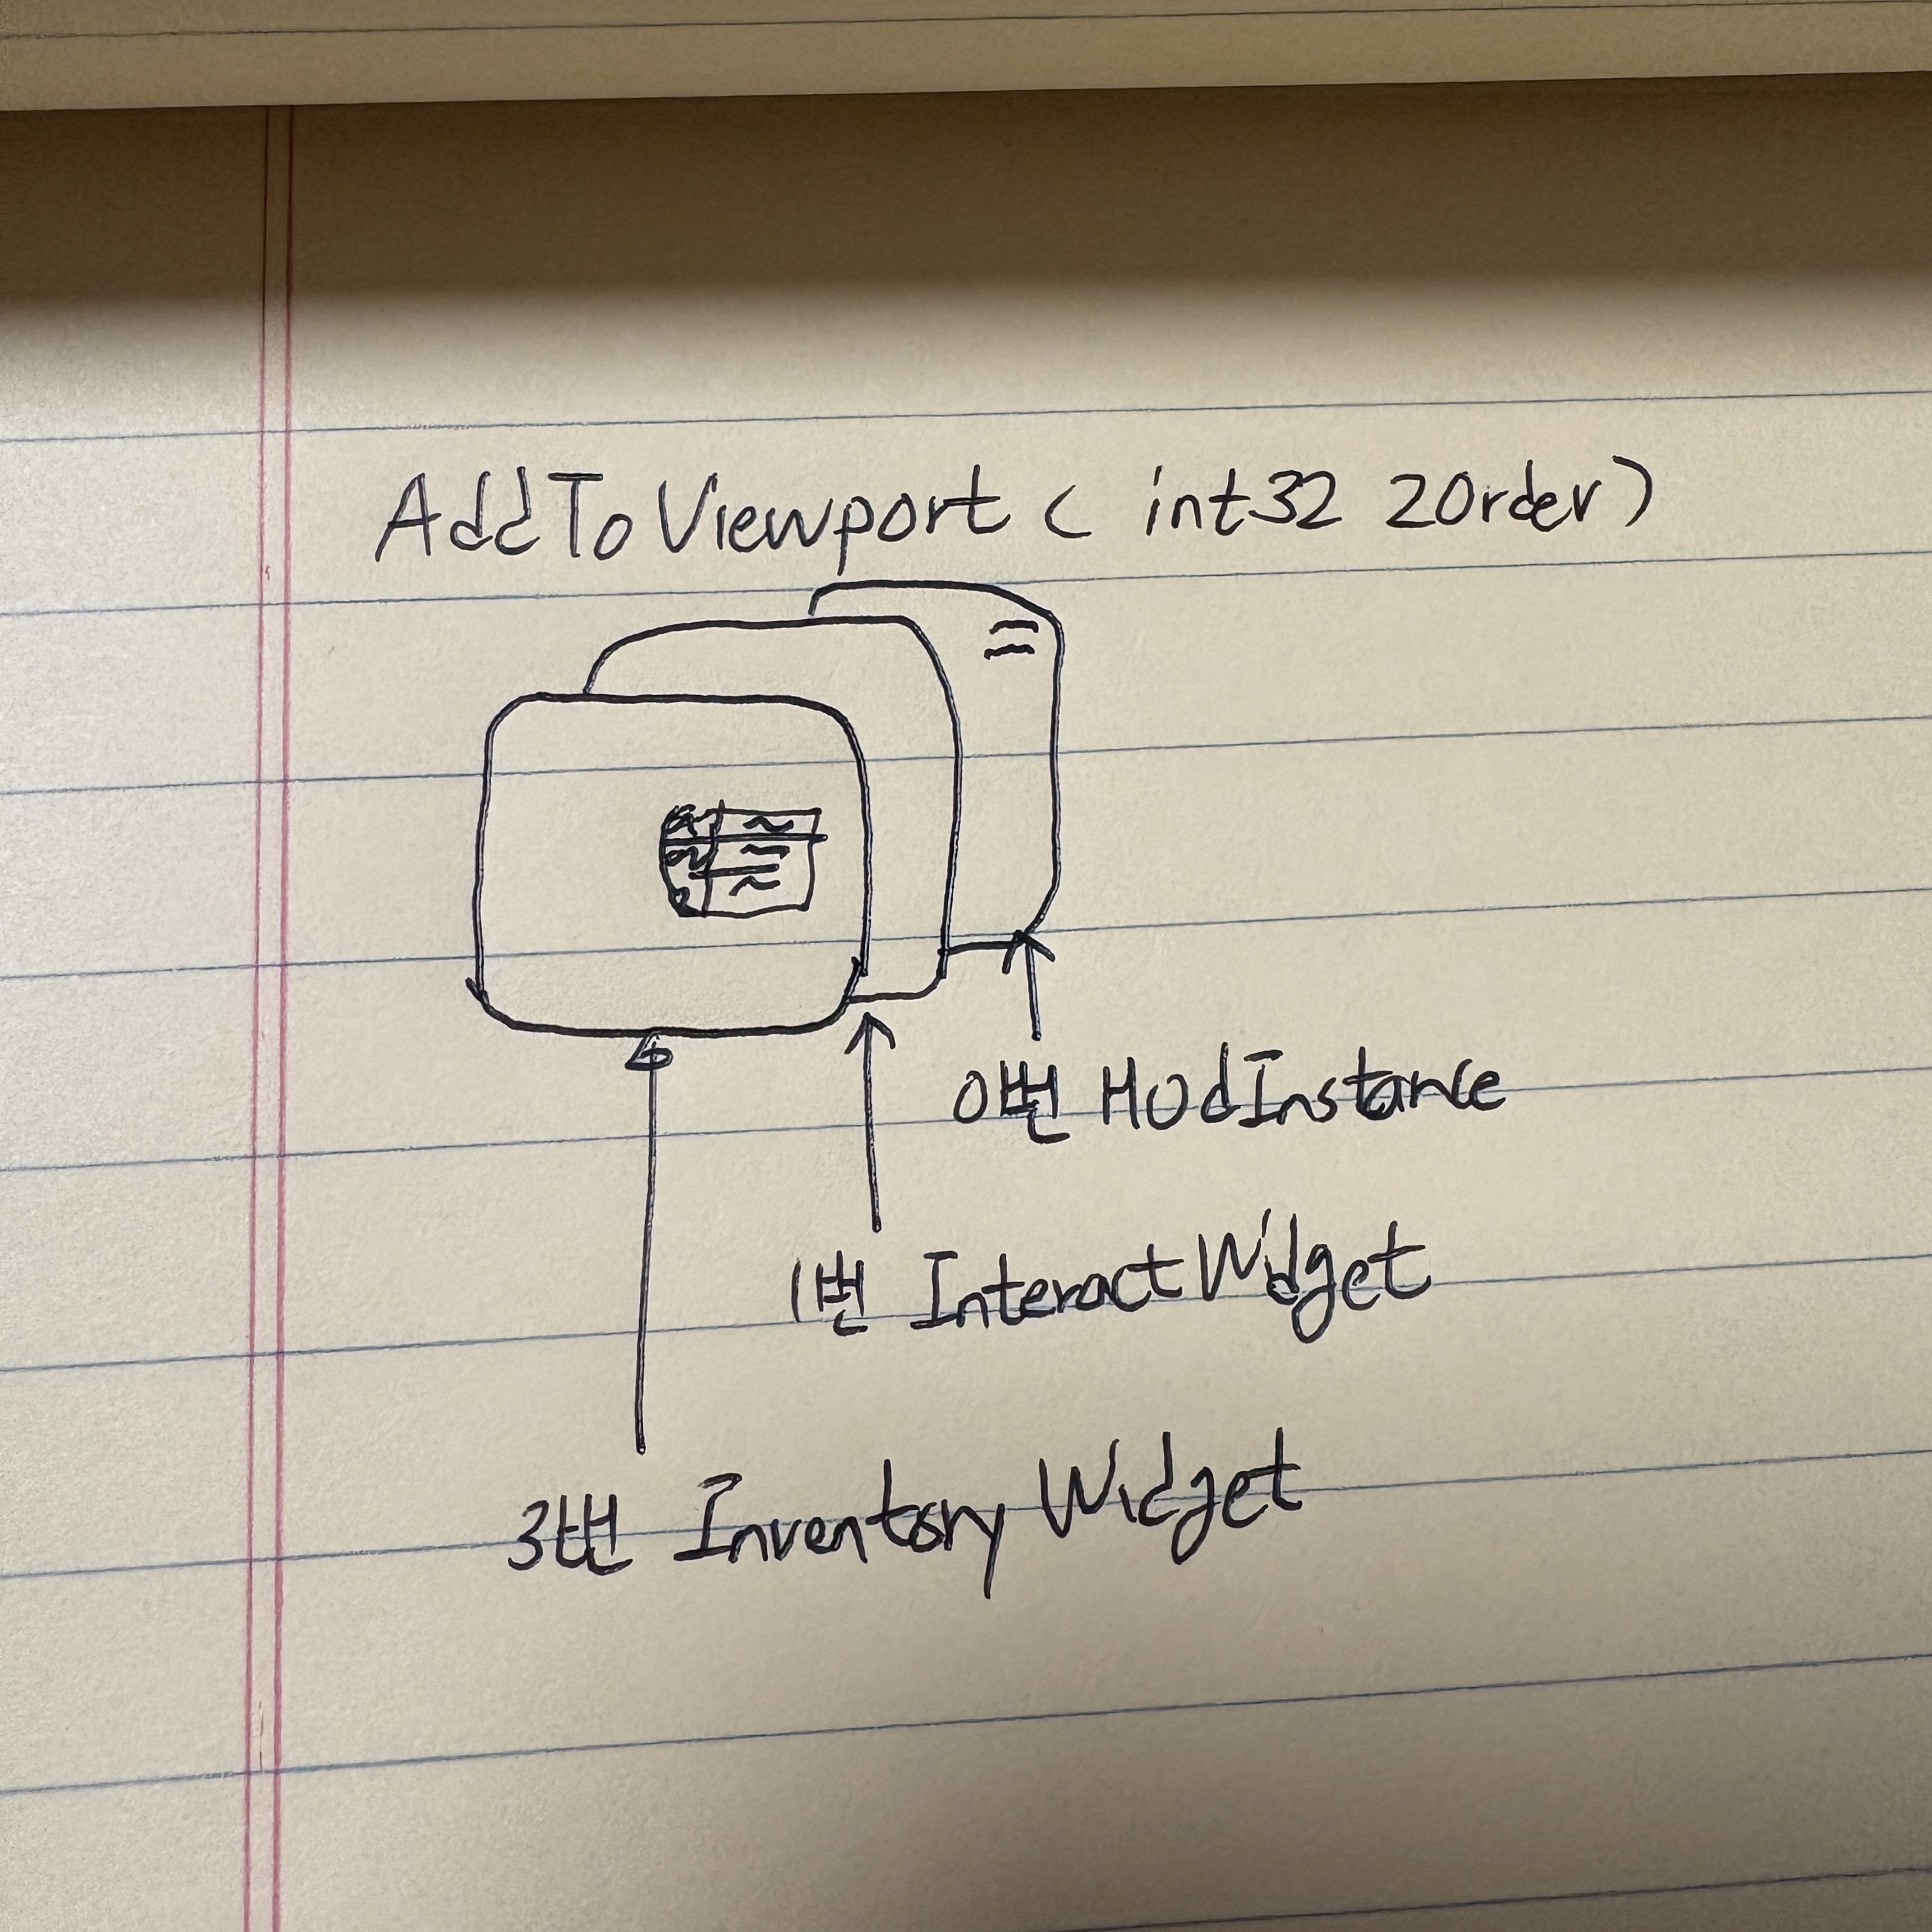 AddToViewport( int32 ZOrder)
0번 HUdInstance
1번 InteractWidget
3번 Inventory Widget